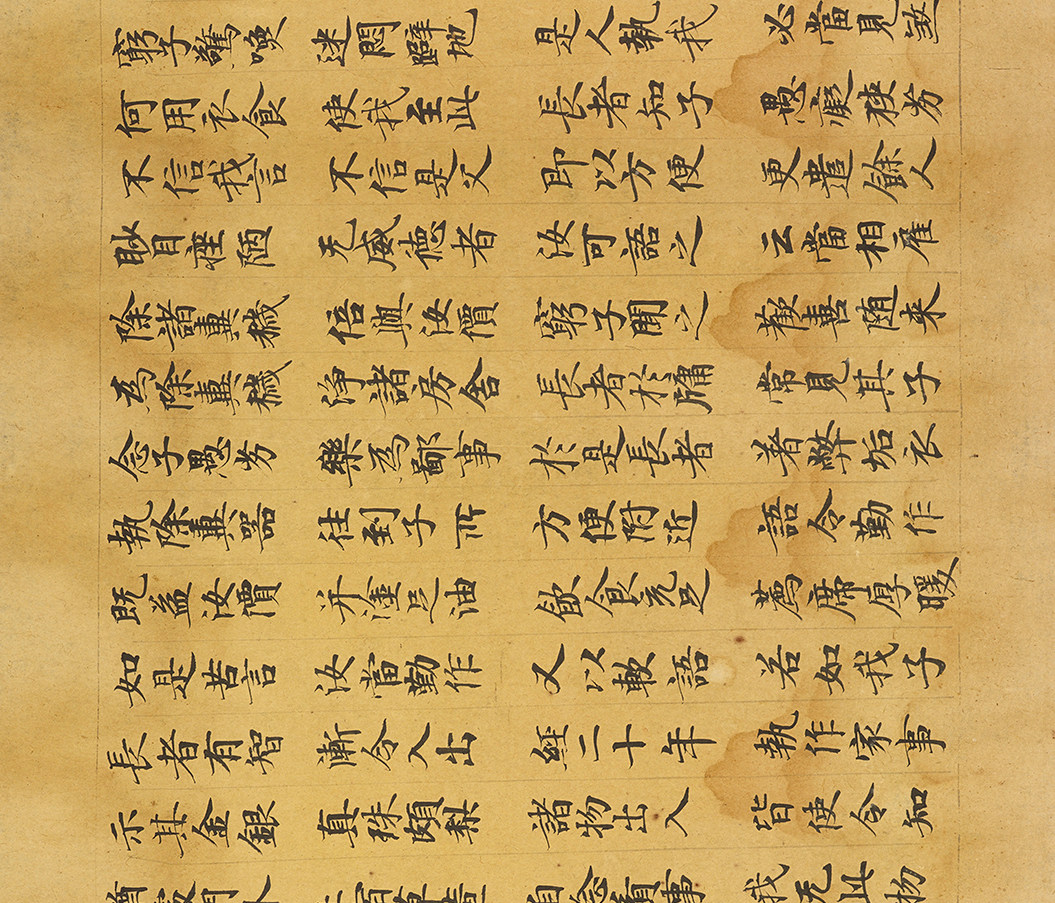 窮子驚喚 迷悶躃地 是人執我 必當見煞
何用衣食 使我至此 長者知子 愚癡狹劣
不信我言 不信是父 即以方便 更遣餘人
眇目痤陋 无威德者 汝可語之 云當相雇
除諸糞穢 倍與汝價 窮子聞之 歡喜随来
為除糞穢 淨諸房舍 長者於牖 常見其子
念子愚劣 樂為鄙事 於是長者 著弊垢衣
執除糞器 往到子所 方便附近 語令勤作
既益汝價 并塗足油 飲食充足 薦席厚暖
如是苦言 汝當勤作 又以軟語 若如我子
長者有智 漸令入出 経二十年 執作家事
示其金銀 真珠頗梨 諸物出入 皆使令知
自念貧事 我无此物